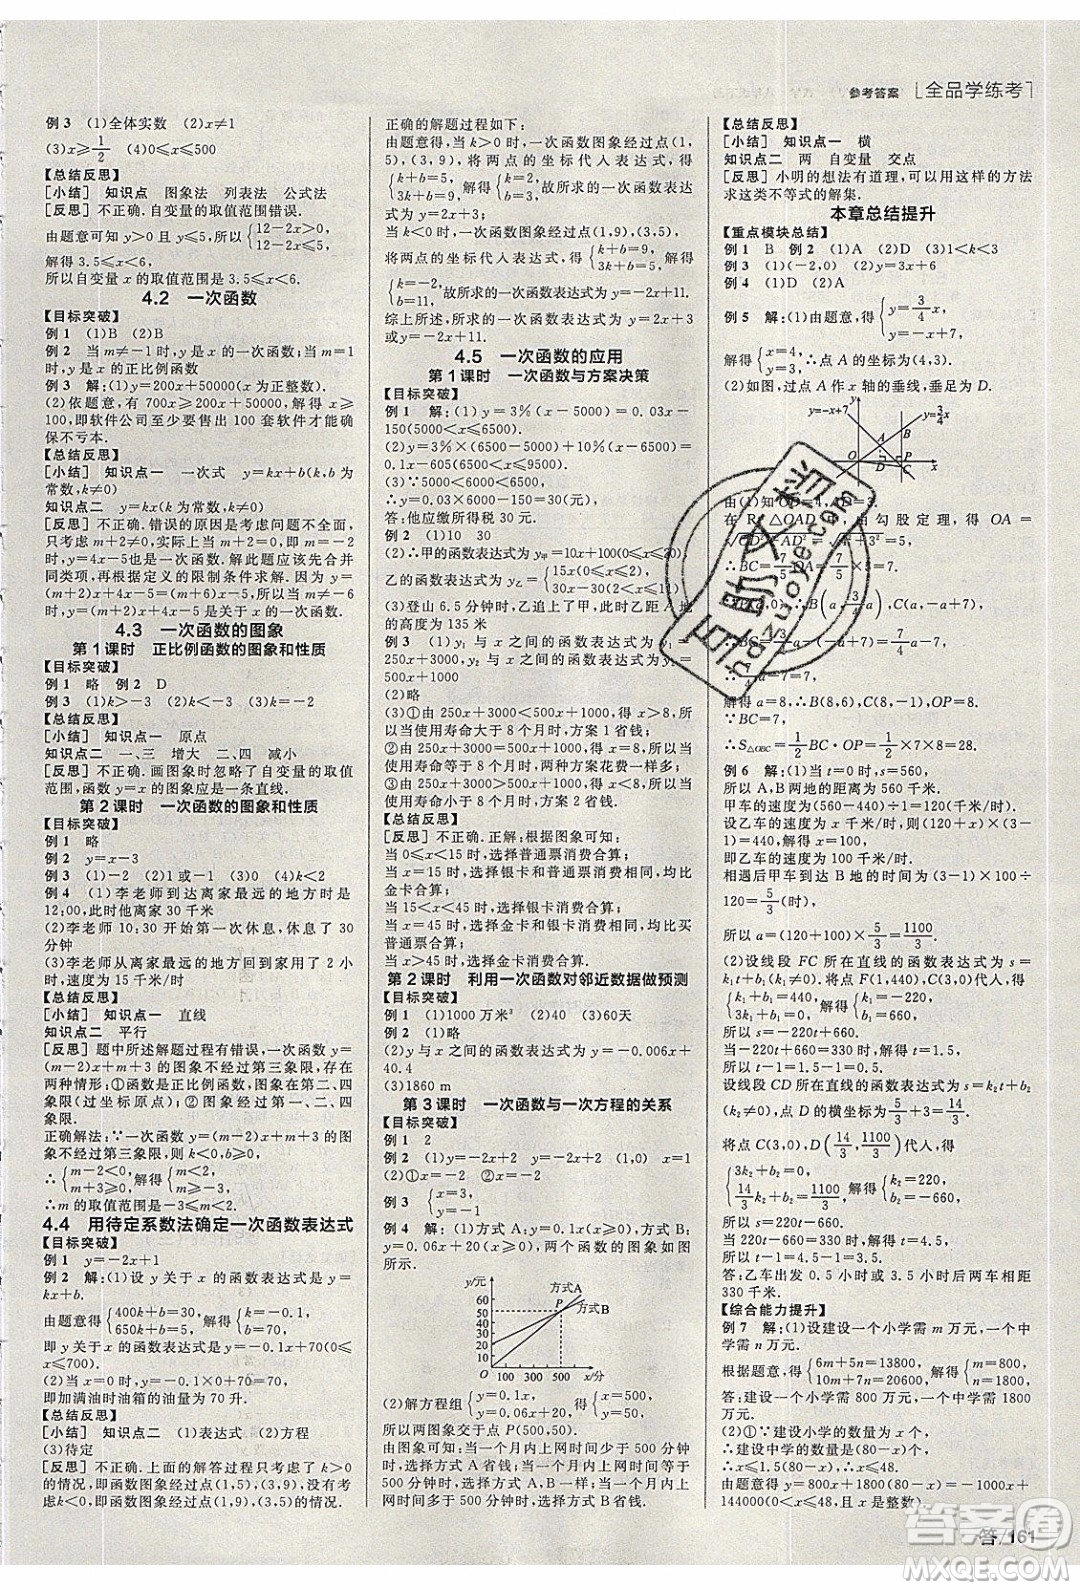 参考答案 [全品学练考]
例3 (1)全体实数 (2)x≠1
(3)x≥1/2 (4)0≤x≤500
【总结反思】
[小结] 知识点 图象法 列表法 公式法
[反思] 不正确. 自变量的取值范围错误.
由题意可知 y=12-2x>0,所以{12-2x>0, 12-2x≤5,
解得 3.5≤x<6.
所以自变量 x 的取值范围是 3.5≤x<6.
4.2 一次函数
【目标突破】
例1 (1)B (2)B
例2 当 m≠-1 时,y 是 x 的一次函数;当 m=1 时,y 是 x 的正比例函数
例3 解:(1)y=200x+50000(x 为正整数).
(2)依题意,有 700x≥200x+50000,解得 x≥100,即软件公司至少要售出 100 套软件才能确保不亏本.
【总结反思】
[小结] 知识点一 一次式 y=kx+b(k,b 为常数,k≠0)
知识点二 y=kx(k 为常数,k≠0)
[反思] 不正确. 错误的原因是考虑问题不全面,只考虑 m+2≠0,实际上当 m+2=0,即 m=-2 时,y=4x-5 也是一次函数. 解此题应该先合并同类项,再根据定义的限制条件解答. 因为 y=(m+2)x+4x-5=(m+6)x-5,所以当 m+6≠0,即 m≠-6 时,y=(m+2)x+4x-5 是关于 x 的一次函数.
4.3 一次函数的图象
第1课时 正比例函数的图象和性质
【目标突破】
例1 略 例2 D
例3 (1)k>-3 (2)k<-3 (3)k=-2
【总结反思】
[小结] 知识点一 原点
知识点二 一、三 增大 二、四 减小
[反思] 不正确. 画图象时忽略了自变量的取值范围,函数 y=x 的图象应是一条直线.
第2课时 一次函数的图象和性质
【目标突破】
例1 略
例2 y=x-3
例3 (1)-2 (2)1 (3)0 (4)k<2
例4 (1)李老师到达离家最远的地方时是 12:00,此时他离家 30 千米
(2)李老师 10:30 开始第一次休息,休息了 30 分钟
(3)李老师从离家最远的地方返回用了 2 小时,速度为 15 千米/时
【总结反思】
[小结] 知识点一 直线
知识点二 平行
[反思] 题中所述解题过程有错误,一次函数 y=(m-2)x+m+3 的图象不经过第三象限,存在两种情形:①函数是正比例函数,图象在第二、四象限(过原点);②函数图象经过第一、二、四象限.
正确解法:∵一次函数 y=(m-2)x+m+3 的图象不经过第三象限,则图象过第二、四象限,
∴{m-2<0, m+3≥0,解得{m<2, m≥-3,
∴m 的取值范围为-3≤m<2.
4.4 用待定系数法确定一次函数表达式
【目标突破】
例1 y=-2x+1
例2 解:(1)设 y 关于 x 的函数表达式是 y=kx+b.
由题意得{400k+b=30, 650k+b=5,解得{k=-0.1, b=70,
即 y 关于 x 的函数表达式是 y=-0.1x+70(0≤x≤700).
(2)当 x=0 时,y=-0.1×0+70=70,
即加满油时油箱的油量为 70 升.
【总结反思】
[小结] 知识点二 (1)表达式 (2)方程
(3)待定
[反思] 不正确. 上面的解答过程只有考虑 k>0 的情况,即函数图象经过点(1,5),(3,9),没有考虑 k<0 的情况,即函数图象经过点(1,9),(3,5)的情况.
正确的解题过程如下:
由题意得,当 k>0 时,一次函数图象经过点(1,5),(3,9),将两点的坐标代入表达式,得{k+b=5, 3k+b=9,解得{k=2, b=3,故所求的一次函数表达式为 y=2x+3;
当 k<0 时,一次函数图象经过点(1,9),(3,5),将两点的坐标代入表达式,得{k+b=9, 3k+b=5,解得{k=-2, b=11,故一次函数表达式为 y=-2x+11.
综上所述,一次函数的表达式为 y=2x+3 或 y=-2x+11.
4.5 一次函数的应用
第1课时 一次函数与方案决策
【目标突破】
例1 解:(1)y=3%(x-5000)=0.03x-150(5000<x≤6500).
(2)y=3%×(6500-5000)+10%(x-6500)=0.1x-605(6500<x≤9500).
(3)∵5000<6000<6500,
∴y=0.03×6000-150=30(元),
答:他应缴所得税 30 元.
例2 (1)10 30
(2)∴甲的函数表达式为 y甲=10x+100(0≤x≤20),
乙的函数表达式为 y乙={15x(0≤x≤2), 30x-30(2<x≤11)
(3)登山 6.5 分钟时,乙追上了甲,此时乙距 A 地的高度为 135 米
例3 (1)y1 与 x 之间的函数表达式为 y1=250x+3000;y2 与 x 之间的函数表达式为 y2=500x+1000
(2)略
(3)①由 250x+3000<500x+1000,得 x>8,所以当使用寿命大于 8 个月时,方案 1 省钱;
②由 250x+3000=500x+1000,得 x=8,所以当使用寿命等于 8 个月时,两种方案花费一样多;
③由 250x+3000>500x+1000,得 x<8,所以当使用寿命小于 8 个月时,方案 2 省钱.
【总结反思】
[反思] 不正确. 正解:根据图象可知:
当 0≤x<15 时,选择普通票消费合算;
当 x=15 时,选择普通票和银卡消费一样,均比金卡合算;
当 15<x<45 时,选择银卡消费合算;
当 x=45 时,选择金卡和银卡消费一样,均比普通票合算;
当 x>45 时,选择金卡消费合算.
第2课时 利用一次函数对邻近数据做预测
【目标突破】
例1 (1)1000 万米³ (2)40 (3)60天
例2 (1)略
(2)y 与 x 之间的函数表达式为 y=-0.006x+40.4
(3)1860 m
第3课时 一次函数与一次方程的关系
【目标突破】
例1 2
例2 (1)y=-2x+2 (1,0) x=1
(2)①x=0 ②x=-2
例3 {x=-4, y=-1
例4 解:(1)方式 A:y=0.1x(x≥0),方式 B:y=0.06x+20(x≥0),两个函数的图象如图所示.
y/元 方式A
方式B
60 50 40 30 20 10
P
O 100 300 500 x/分
(2)解方程组{y=0.1x, y=0.06x+20,得{x=500, y=50,
所以两图象交于点 P(500,50).
由图象可知:当一个月内上网时间少于 500 分钟时,选择方式 A 省钱;当一个月内上网时间等于 500 分钟时,选择方式 A、方式 B 一样;当一个月内上网时间多于 500 分钟时,选择方式 B 省钱.
【总结反思】
[小结] 知识点一 横
知识点二 两 自变量 交点
[反思] 小明的想法有道理,可以用这样的方法求这类不等式的解集.
本章总结提升
【重点模块总结】
例1 B 例2 (1)A (2)D (3)1<k<3
例3 (1)(-2,0) (2)y=3x+6
例4 (1)D (2)A
例5 解:(1)由题意,得{y=3/4x, y=-x+7,
解得{x=4, y=3,∴点 A 的坐标为(4,3).
(2)如图,过点 A 作 x 轴的垂线,垂足为 D.
y=-x+7 y y=3/4x
A B O D P C x
由(1)知 OD=4,
在 Rt△OAD 中,由勾股定理,得 OA=
=5,
∴BC=7/5OA=7/5×5=7.
∴B(a,3/4a),C(a,-a+7),
∴BC=
=7/4a-7,
∴7/4a-7=7,
解得 a=8,∴B(8,6),C(8,-1),OP=8.
∵BC=7,
∴S△OBC=1/2BC·OP=1/2×7×8=28.
例6 解:(1)当 t=0 时,s=560,
所以 A,B 两地的距离为 560千米.
甲车的速度为(560-440)÷1=120(千米/时).
设乙车的速度为 x 千米/时,则(120+x)×(3-1)=440,解得 x=100,
即乙车的速度为 100 千米/时.
相遇后甲车到达 B 地的时间为(3-1)×100÷120=5/3(时),
所以 a=(120+100)×5/3=1100/3(千米).
(2)设线段 FC 所在的直线的函数表达式为 s=k₁t+b₁(k₁≠0),将点 F(1,440),C(3,0)代入,得{k₁+b₁=440, 3k₁+b₁=0,解得{k₁=-220, b₁=660,
所以 s=-220t+660.
当-220t+660=330 时,解得 t=1.5,
所以 t-1=1.5-1=0.5.
设线段 CD 所在直线的函数表达式为 s=k₂t+b₂(k₂≠0),点 D 的横坐标为 5/3+3=14/3,
将点 C(3,0),D(14/3,1100/3)代入,得
{3k₂+b₂=0, 14/3k₂+b₂=1100/3,解得{k₂=220, b₂=-660,
所以 s=220t-660.
当 220t-660=330 时,解得 t=4.5,
所以 t-1=4.5-1=3.5.
答:乙车出发 0.5 小时或 3.5 小时后两车相距 330 千米.
【综合能力提升】
例7 解:(1)设建设一个小学需 m 万元,一个中学需 n 万元.
根据题意,得{6m+5n=13800, 10m+7n=20600,解得{m=800, n=1800.
答:建设一个小学需 800 万元,一个中学需 1800 万元.
(2)①∵建设小学的数量为 x 个,
∴建设中学的数量为(80-x)个.
由题意得 y=800x+1800(80-x)=-1000x+144000(0<x≤48,且 x 是整数).
答/161
答案圈
MXQE.COM
互助文档
hdzuoye.com